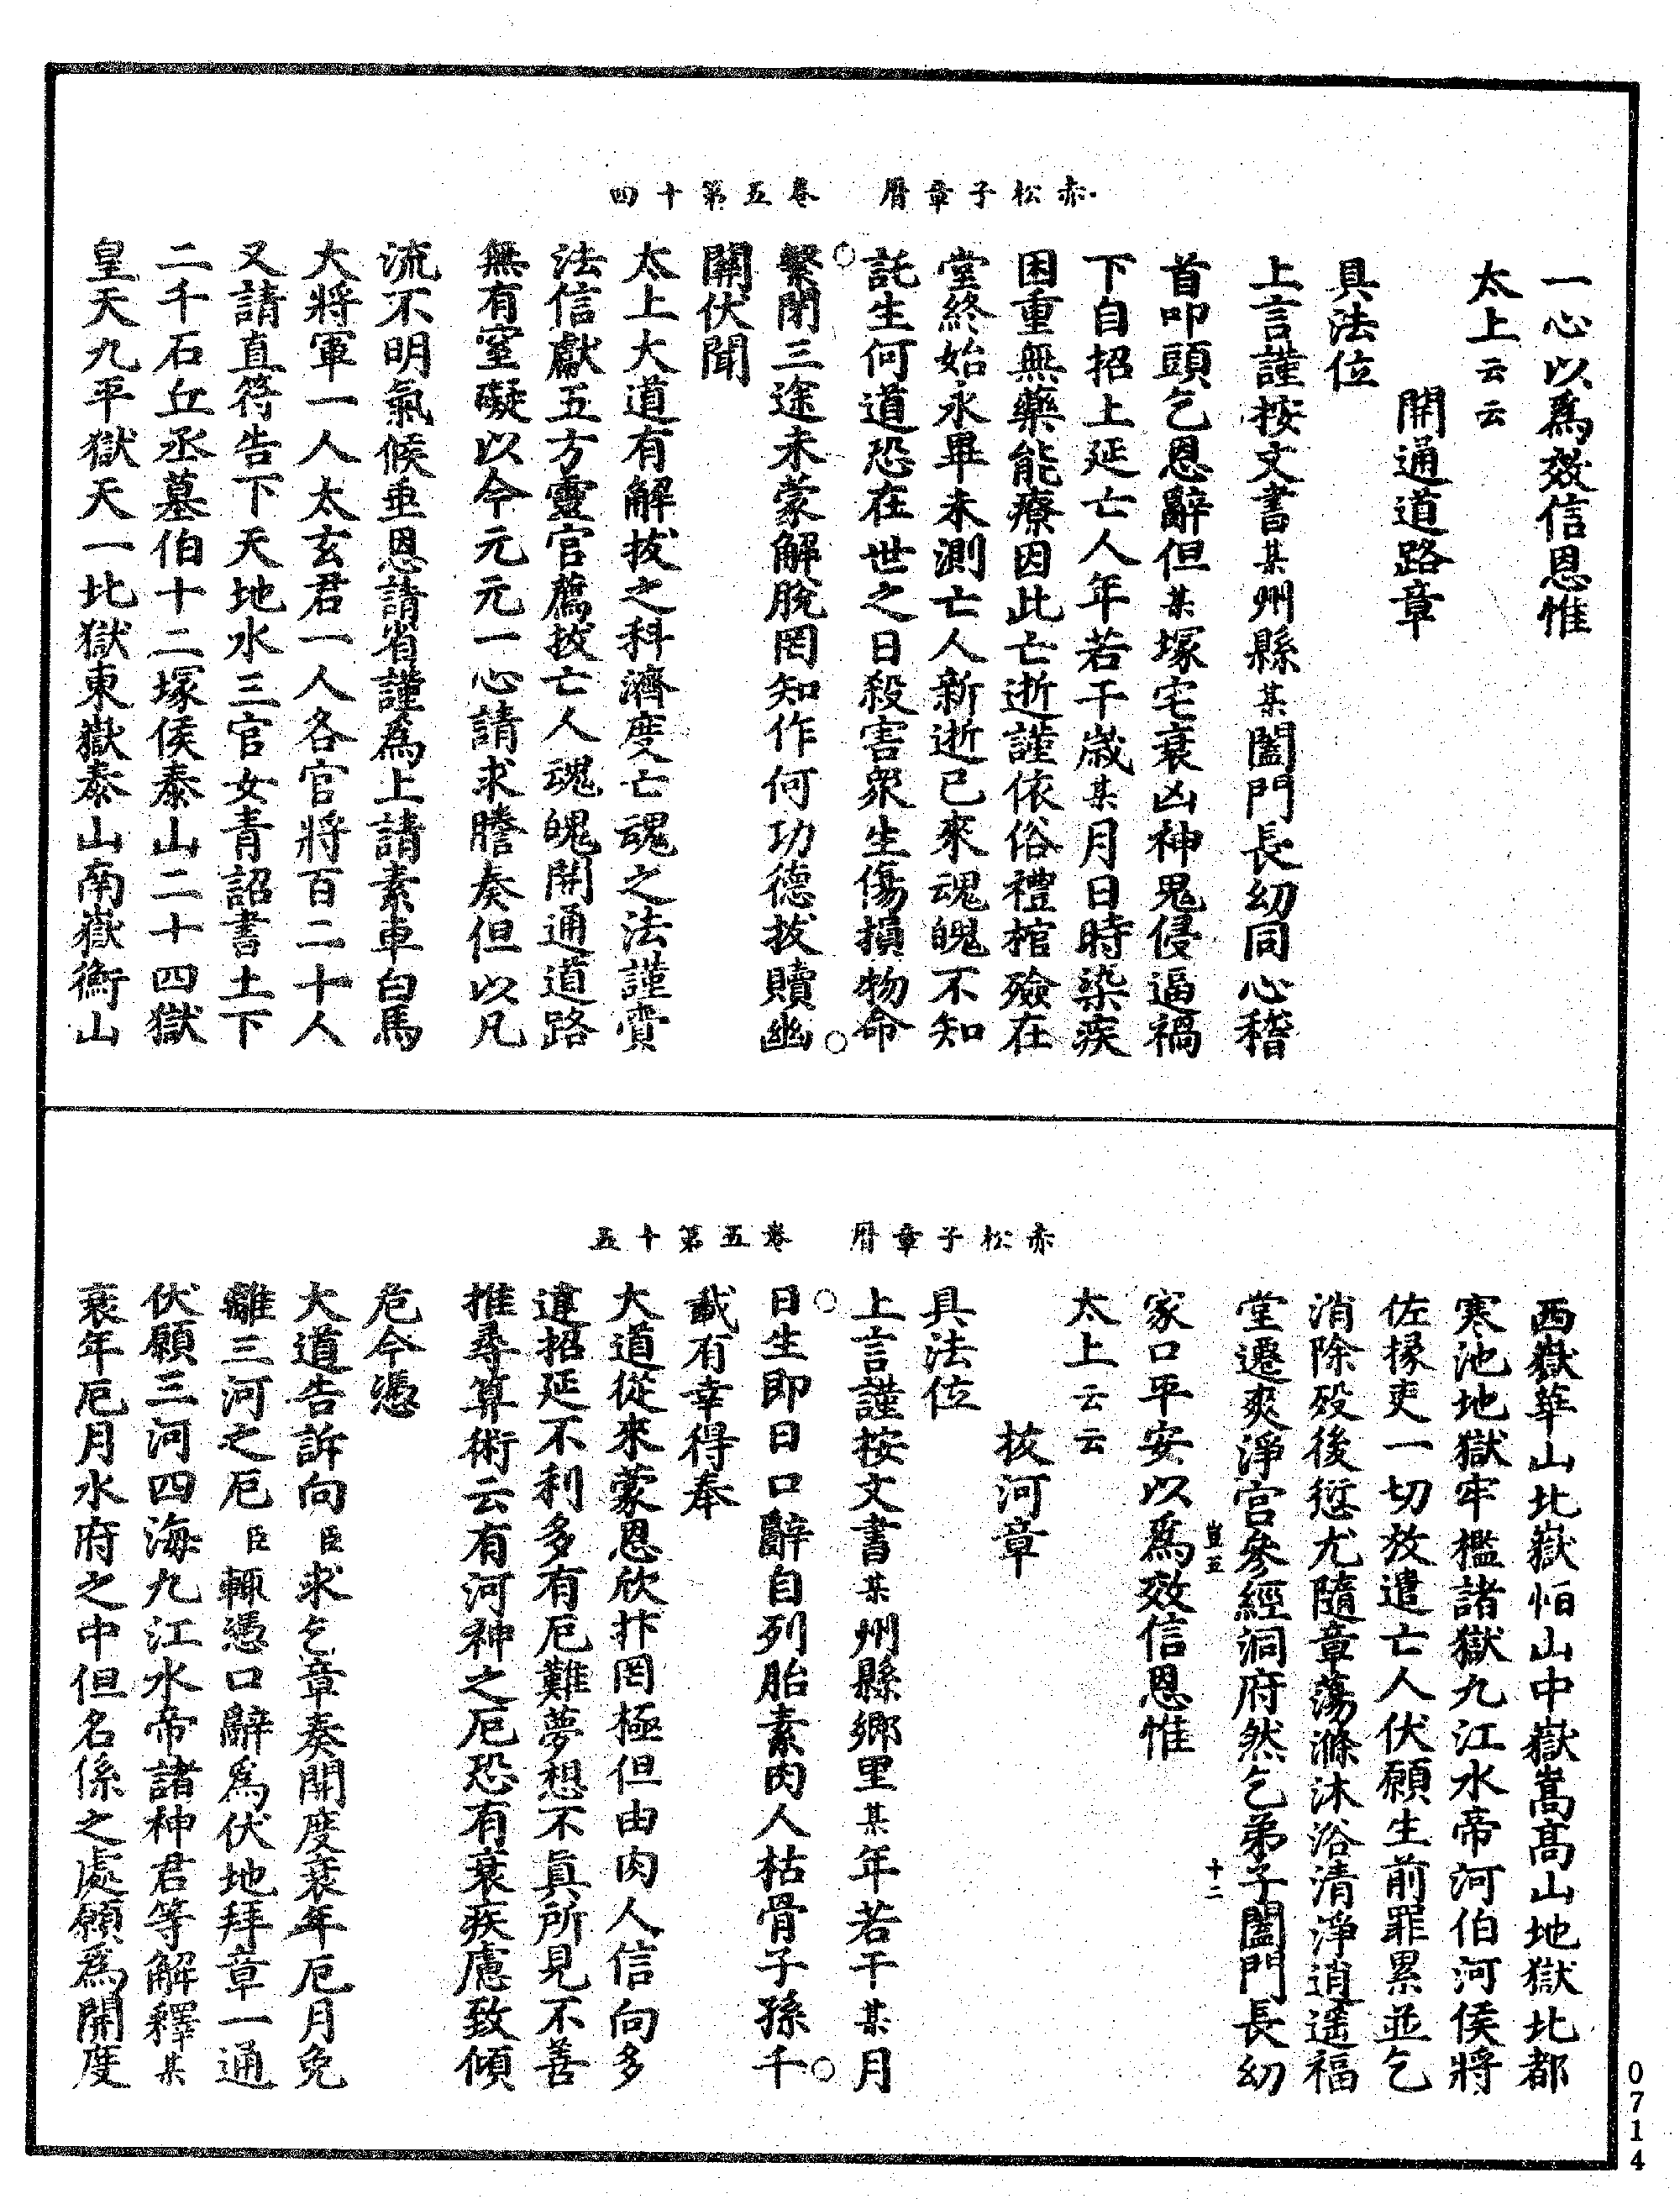 赤松子章曆　卷五第十四
一心以為效信恩惟
太上云云
開通道路章
具法位
上言謹按文書某州縣某闔門長幼同心稽
首叩頭乞恩辭但某塚宅衰凶神鬼侵逼禍
下自招上延亡人年若干歲某月日時染疾
困重無藥能療因此亡逝謹依俗禮棺殮在
堂終始永畢未測亡人新逝已來魂魄不知
託生何道恐在世之日殺害眾生傷損物命
繫閉三途未蒙解脫罔知作何功德拔贖幽
關伏聞
太上大道有解拔之科濟度亡魂之法謹賫
法信獻五方靈官薦拔亡人魂魄開通道路
無有窒礙以今元元一心請求謄奏但以凡
流不明氣候垂恩請省謹為上請素車白馬
大將軍一人太玄君一人各官將百二十人
又請直符告下天地水三官女青詔書土下
二千石丘丞墓伯十二塚侯泰山二十四獄
皇天九平獄天一北獄東嶽泰山南嶽衡山
赤松子章曆　卷五第十五
西嶽華山北嶽恒山中嶽嵩高山地獄北都
寒池地獄牢檻諸獄九江水帝河伯河侯將
佐掾吏一切放遣亡人伏願生前罪累並乞
消除歿後愆尤隨章蕩滌沐浴清淨逍遙福
堂遷爽淨宮參經洞府然乞弟子闔門長幼
豈五　十二
家口平安以為效信恩惟
太上云云
拔河章
具法位
上言謹按文書某州縣鄉里某年若干某月
日生即日口辭自列胎素肉人枯骨子孫千
載有幸得奉
大道從來蒙恩欣抃罔極但由肉人信向多
違招延不利多有厄難夢想不真所見不善
推尋算術云有河神之厄恐有衰疾慮致傾
危今憑
大道告訴向臣求乞章奏開度衰年厄月免
離三河之厄臣輒憑口辭為伏地拜章一通
伏願三河四海九江水帝諸神君等解釋某
衰年厄月水府之中但名係之處願為開度
0714